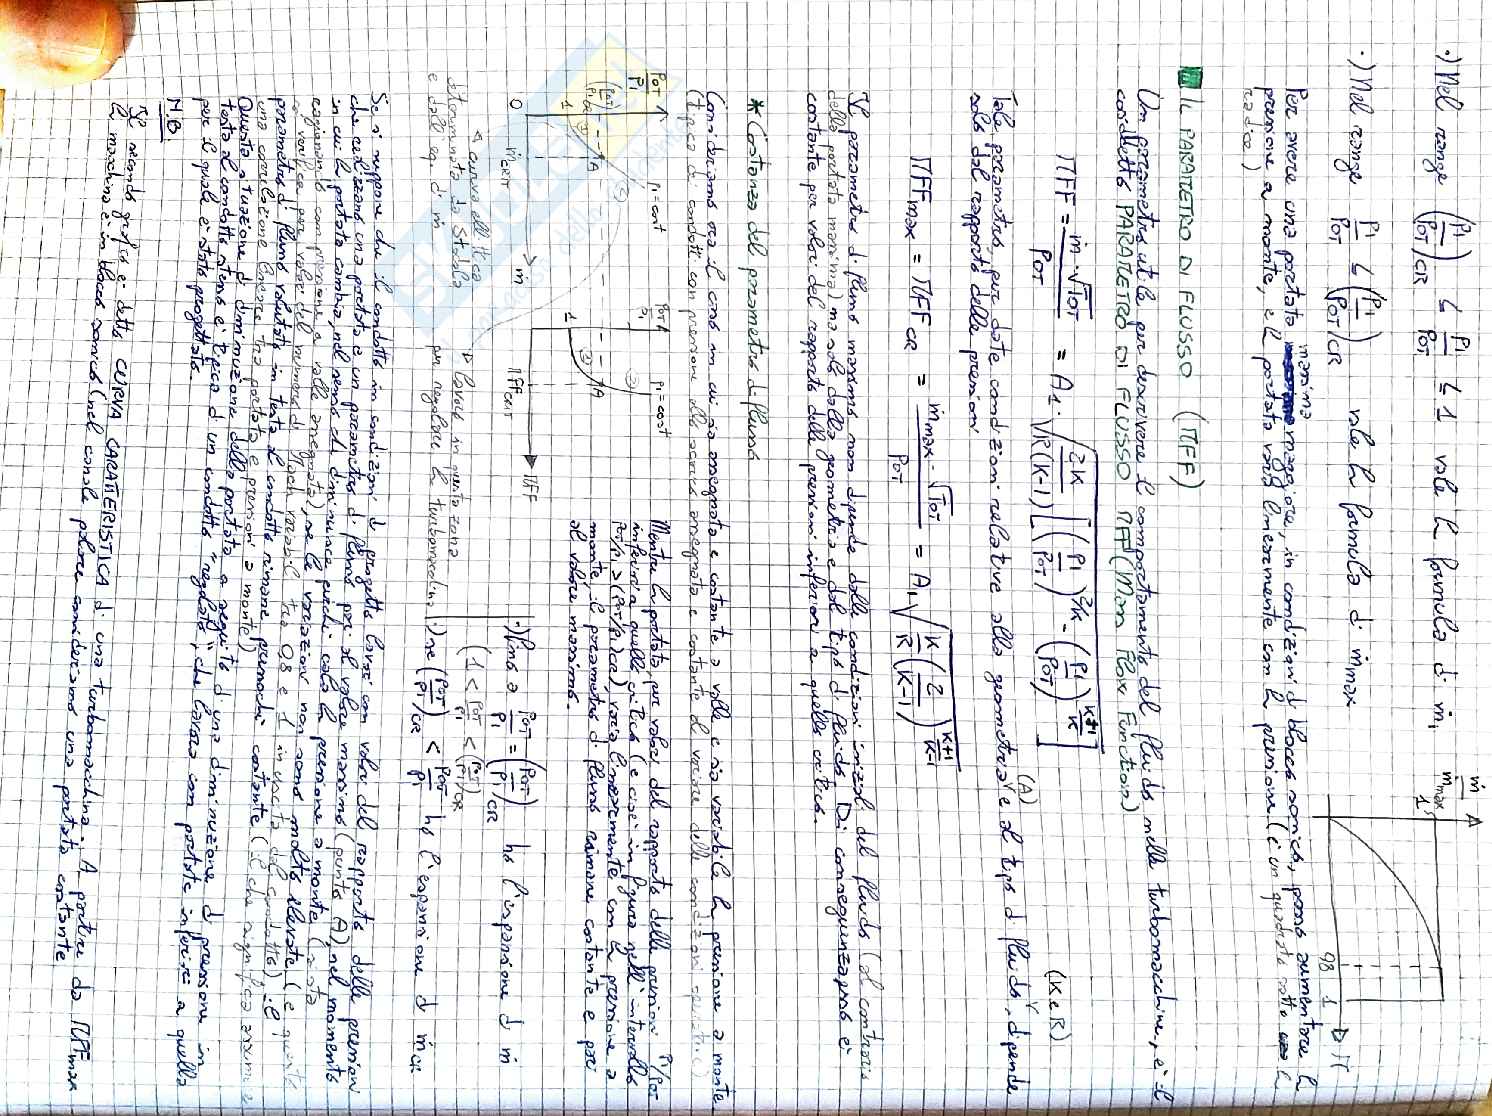 ·) Nel range (P1/POT)CR ≤ P1/POT ≤ 1 vale la formula di ṁ1
·) Nel range P1/POT < (P1/POT)CR vale la formula di ṁmax
ṁ/ṁmax
1
0,8 1
M
Per avere una portata massima maggiore, in condizioni di blocco sonico, posso aumentare la
pressione a monte, e la portata varia linearmente con la pressione (è un quadrato sotto la
radice)
IL PARAMETRO DI FLUSSO (MFF)
Un parametro utile per descrivere il comportamento del fluido nelle turbomacchine, è il
cosiddetto PARAMETRO DI FLUSSO MFF (Mass Flow Function)
MFF = ṁ·√TOT / POT = A1·√(2K/(R(K-1)) [(P1/POT)^(2/K) - (P1/POT)^((K+1)/K)])
Tale parametro, per date condizioni relative alla geometria (A) e al tipo di fluido (K e R), dipende
solo dal rapporto delle pressioni
MFFmax = MFFCR = ṁmax·√TOT / POT = A1·√(K/R (2/(K-1))^((K+1)/(K-1)))
Il parametro di flusso massimo non dipende dalle condizioni iniziali del fluido (al contrario
della portata massima) ma solo dalla geometria e dal tipo di fluido. Di conseguenza è
costante per valori del rapporto delle pressioni inferiori a quello critico.
* Costanza del parametro di flusso
Consideriamo ora il caso in cui sia assegnata e costante a valle e sia variabile la pressione a monte
(tipico di condotti con pressione allo scarico assegnata e costante al variare delle condizioni operative)
POT/P1
(POT/P1)CR
1
0
A
P1=cost
ṁCRIT
ṁ
POT/P1
1
A
P1=cost
MFFCRIT
MFF
Mentre la portata, per valori del rapporto delle pressioni P1/POT
inferiori a quello critico (e cioè in figura nell'intervallo
POT/P1 > (POT/P1)CR), varia linearmente con la pressione a
monte, il parametro di flusso rimane costante e pari
al valore massimo.
curva ellittica
determinata da Stodola
e dalla eq. di ṁ
Lavoro in questa zona
per regolare la turbomacchina
·) fino a POT/P1 = (POT/P1)CR ho l'espansione di ṁ
(1 < POT/P1 < (POT/P1)CR
·) se (POT/P1)CR < POT/P1 ho l'espansione di ṁCR
Se si suppone che il condotto in condizioni di progetto lavori con valori del rapporto delle pressioni
che realizzano una portata e un parametro di flusso pari al valore massimo (punto A), nel momento
in cui la portata cambia, nel senso di diminuire perché cala la pressione a monte (si sta
ragionando con pressione a valle assegnata), se le variazioni non sono molto elevate (e questo
si verifica per valori del numero di Mach variabili tra 0,8 e 1 in uscita del condotto) il
parametro di flusso valutato in testa al condotto rimane pressoché costante (il che significa assumere
una correlazione lineare tra portata e pressioni a monte)
Questa situazione di diminuzione della portata a seguito di una diminuzione di pressione in
testa al condotto stesso è tipica di un condotto "regolato", che lavora con portate inferiori a quella
per il quale è stato progettato.
N.B.
Il secondo grafico è detto CURVA CARATTERISTICA di una turbomacchina. A partire da MFFmax
la macchina è in blocco sonico (nel canale polare consideriamo una portata costante